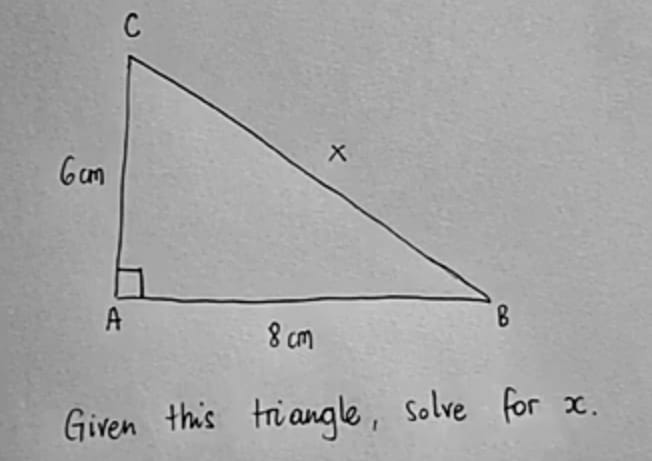 C
x
6cm
A
B
8cm
Given this triangle, solve for x.